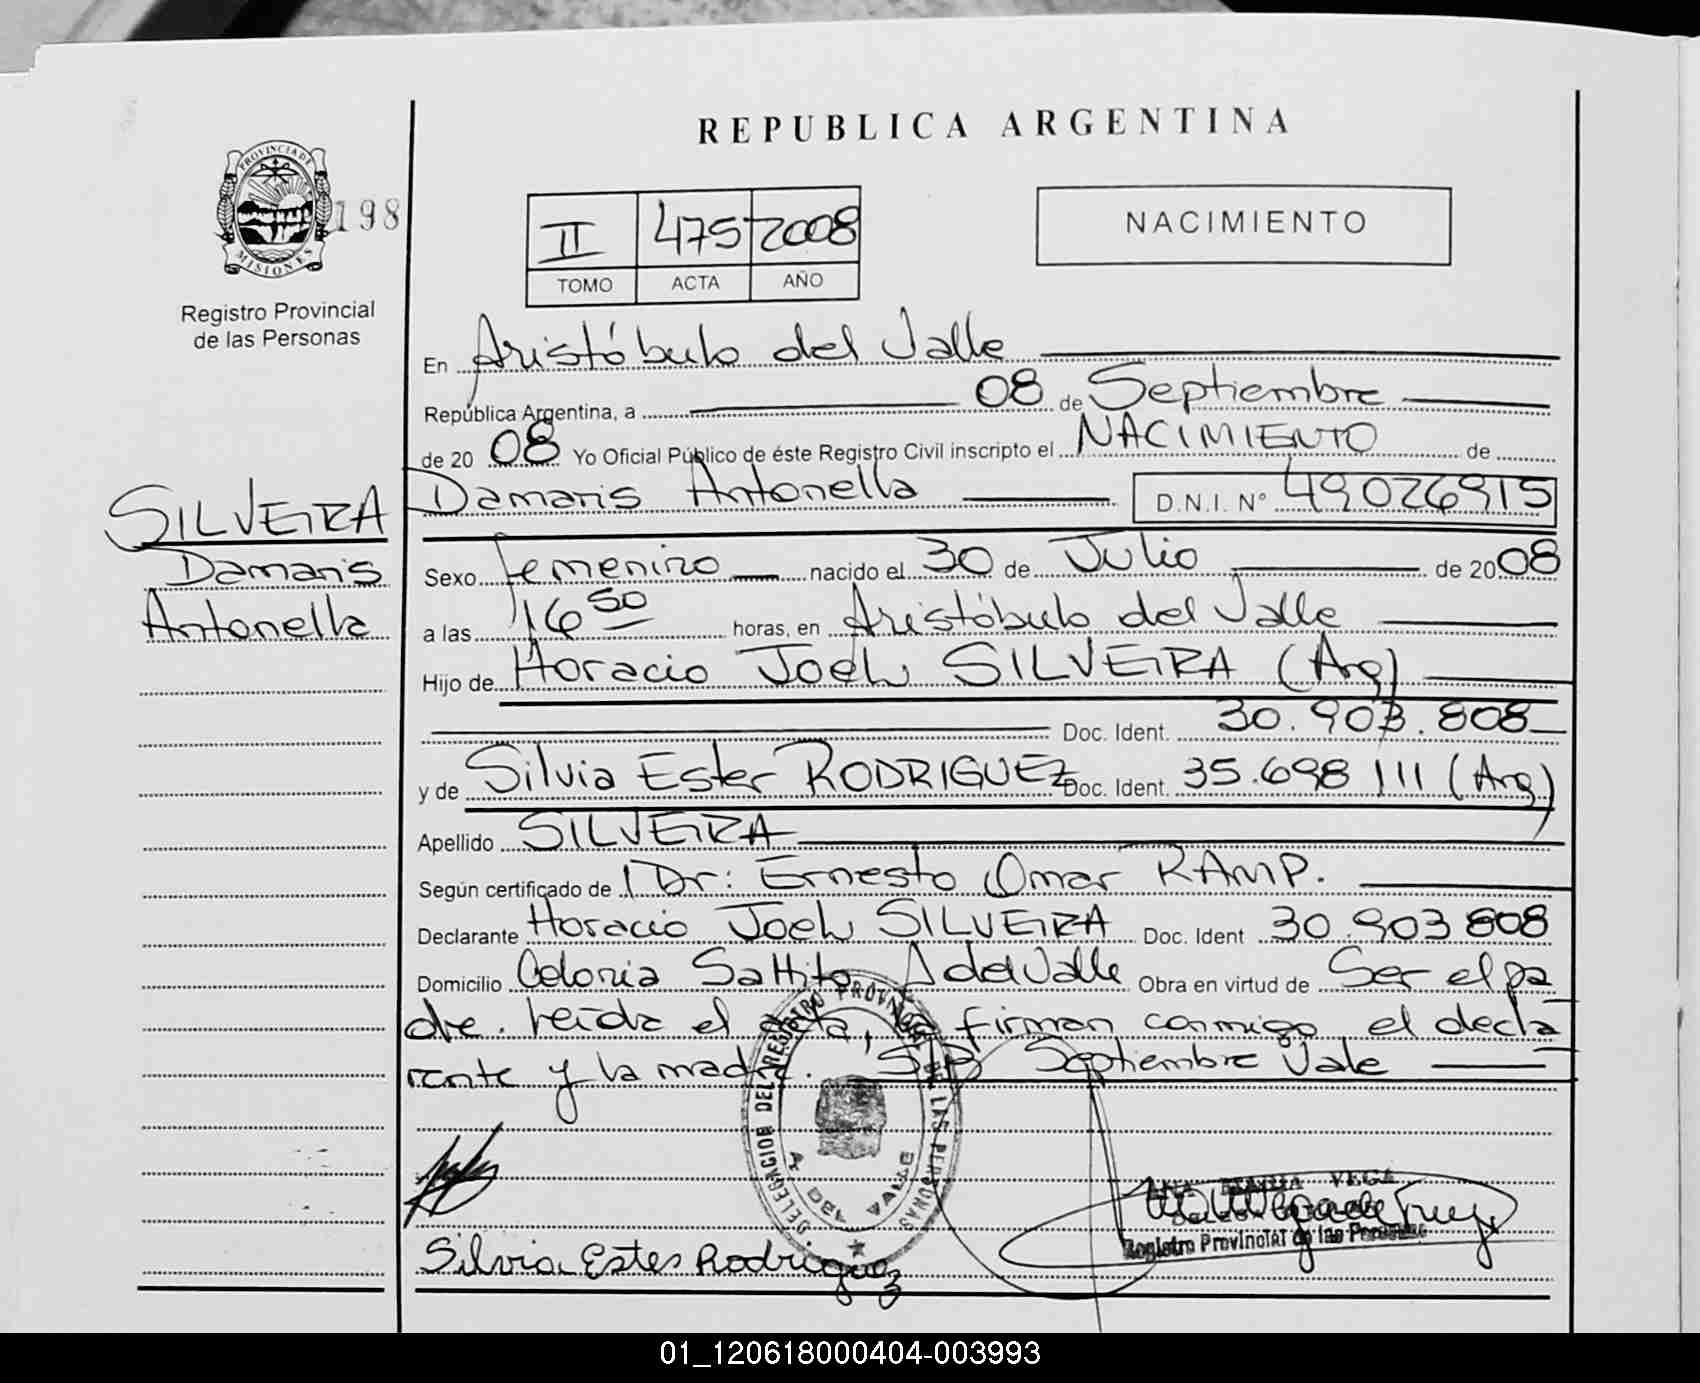 REPUBLICA ARGENTINA
PROVINCIA DE
MISIONES
198
Registro Provincial
de las Personas
II 475 2008
TOMO ACTA AÑO
NACIMIENTO
En Aristóbulo del Valle
República Argentina, a 08 de Septiembre
de 2008 Yo Oficial Público de éste Registro Civil inscripto el NACIMIENTO de
SILVEIRA
Damaris
Antonella
Damaris Antonella D.N.I. Nº 49026915
Sexo femenino nacido el 30 de Julio de 2008
a las 16 50 horas, en Aristóbulo del Valle
Hijo de Horacio Joel SILVEIRA (Arg)
Doc. Ident. 30.903.808
y de Silvia Ester RODRIGUEZ Doc. Ident. 35.698 111 (Arg)
Apellido SILVEIRA
Según certificado de Dr: Ernesto Omar RAMP.
Declarante Horacio Joel SILVEIRA Doc. Ident 30.903 808
Domicilio Colonia Saltito A del Valle Obra en virtud de Ser el pa
dre. leída el acta, la firman conmigo el decla
rante y la madre. S/B Septiembre Vale
DELEGACION DEL REGISTRO PROVINCIAL DE LAS PERSONAS
A. DEL VALLE
VEGA
Registro Provincial de las Personas
Silvia Ester Rodriguez
01_120618000404-003993